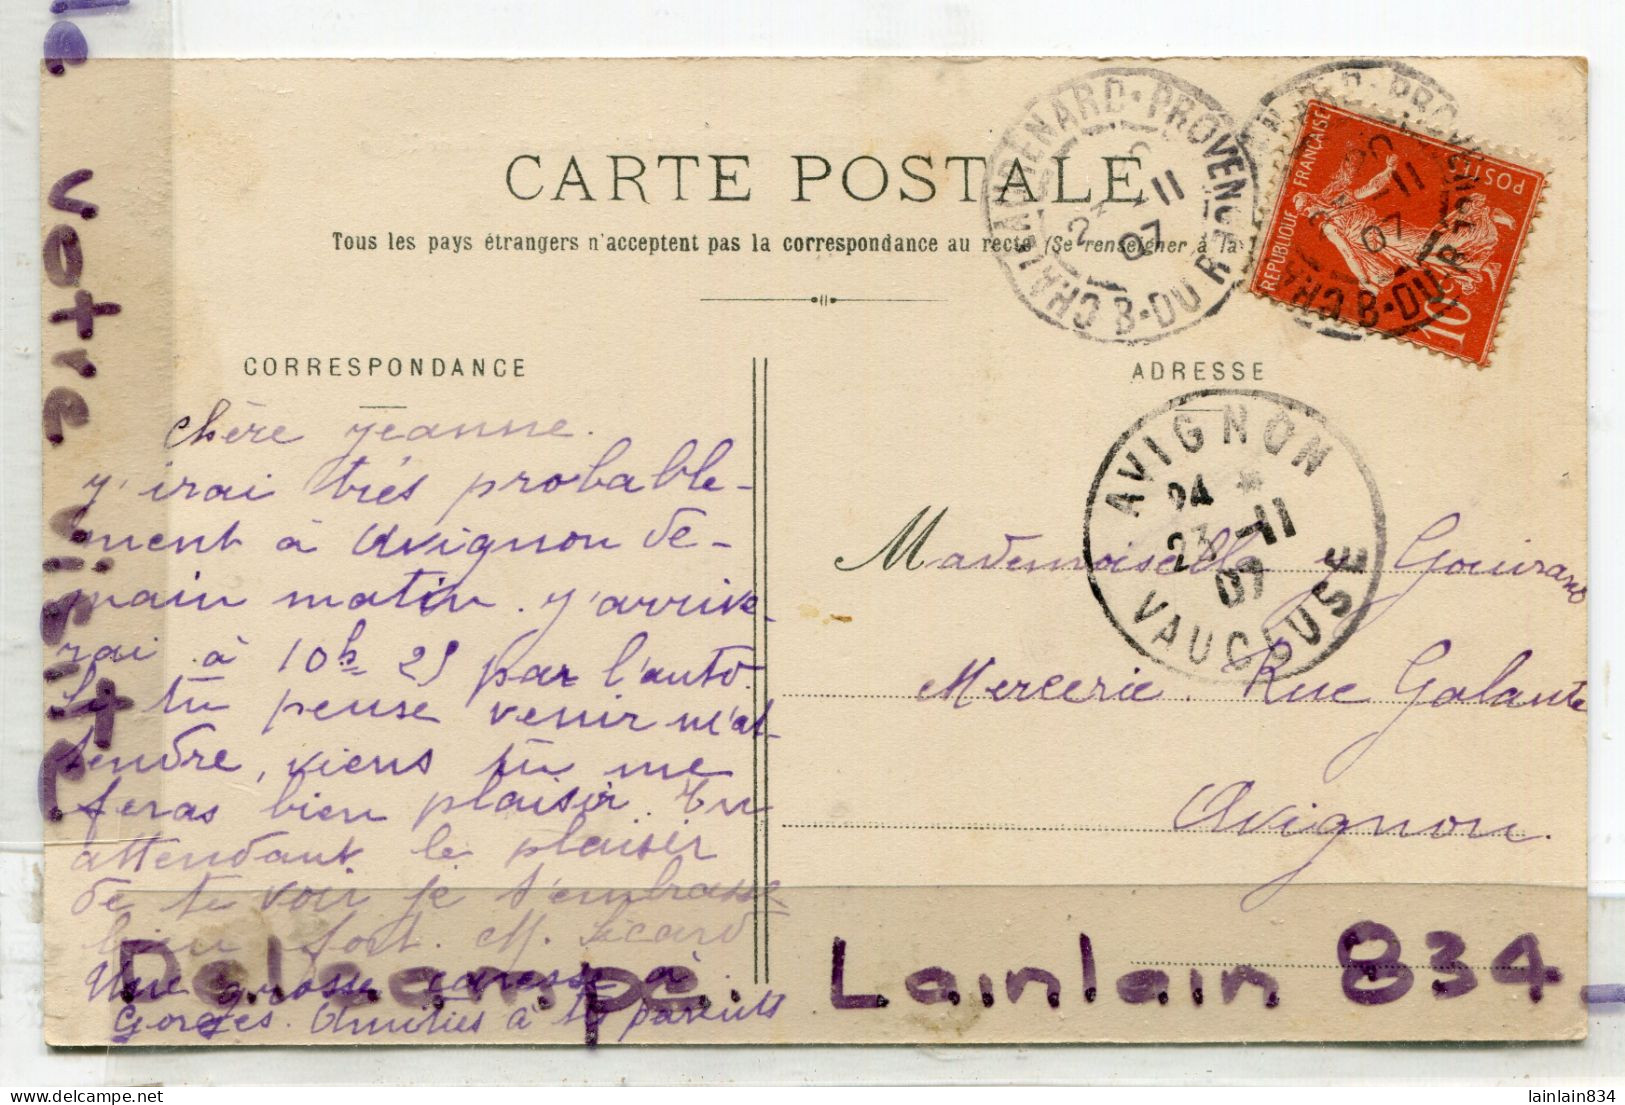 CARTE POSTALE
Tous les pays étrangers n'acceptent pas la correspondance au recto (Se renseigner à la
CHATEAURENARD-PROVENCE
23 -11
07
B-DU-R
REPUBLIQUE FRANÇAISE
POSTES
10
CORRESPONDANCE
ADRESSE
Chère Jeanne.
J'irai très probable-
ment à Avignon de-
main matin. J'arrive-
rai à 10h 25 par l'auto.
Si tu peuse venir m'at-
tendre, viens tu me
feras bien plaisir. En
attendant le plaisir
de te voir je t'embrasse
bien fort. M. Sicard
Une grosse caresse à
Gorges. Amitiés à tes parents
AVIGNON
23 -11
07
VAUCLUSE
Mademoiselle J Gouirand
Mercerie. Rue Galante
Avignon.
votre visite
Delcampe. Lainlain 834
delcampe.net
lainlain834